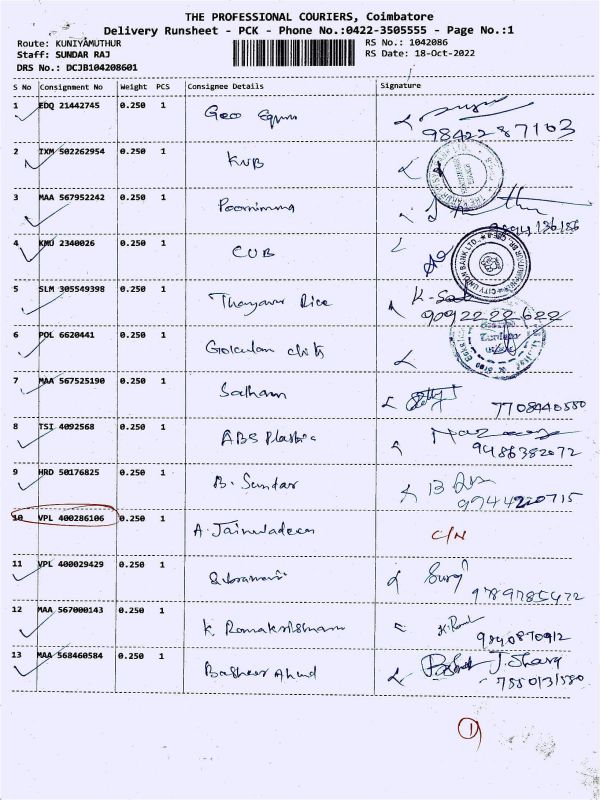 THE PROFESSIONAL COURIERS, Coimbatore
Delivery Runsheet - PCK - Phone No.:0422-3505555 - Page No.:1
Route: KUNIYAMUTHUR RS No.: 1042086
Staff: SUNDAR RAJ RS Date: 18-Oct-2022
DRS No.: DCJB104208601
S No Consignment No Weight PCS Consignee Details Signature
1 EDQ 21442745 0.250 1 Geo
9842287103
2 IXM 502262954 0.250 1 KVB
3 MAA 567952242 0.250 1 Poornimma
4 KMU 2340026 0.250 1 CUB
CITY UNION BANK LTD.
5 SLM 305549398 0.250 1 Rice
9092222622
6 POL 6620441 0.250 1 Gokulam chits
7 MAA 567525190 0.250 1 Sadham
7708440580
8 TSI 4092568 0.250 1 ABS Plastic
9486382072
9 HRD 50176825 0.250 1 B. Sundar
9944220715
10 VPL 400286106 0.250 1 A. C/N
11 VPL 400029429 0.250 1
9789785472
12 MAA 567000143 0.250 1 K. Ramakrishnan
9840870912
13 MAA 568460584 0.250 1 Basheer Ahmd
7550131580
1